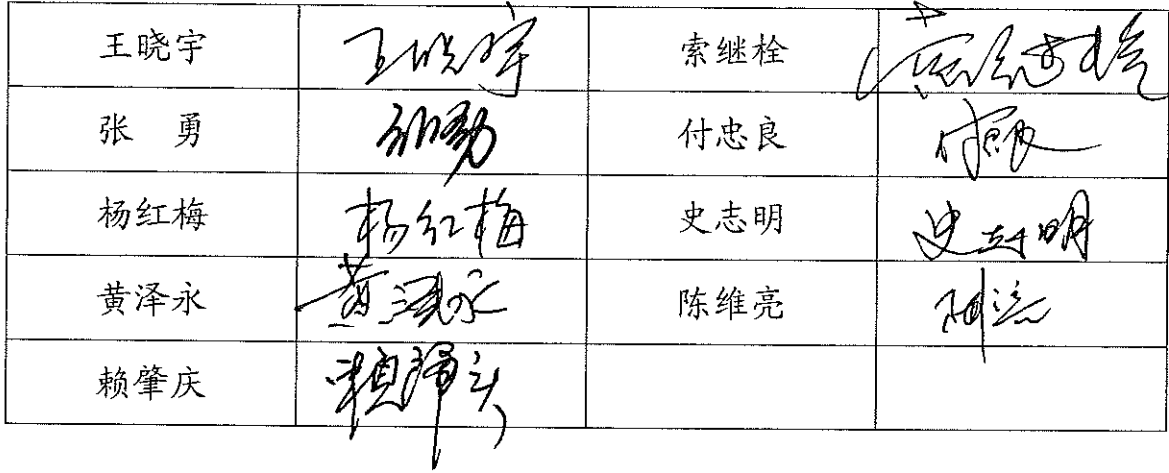 王晓宇 王晓宇 索继栓 索继栓
张 勇 张勇 付忠良 付忠良
杨红梅 杨红梅 史志明 史志明
黄泽永 黄泽永 陈维亮
赖肇庆 赖肇庆